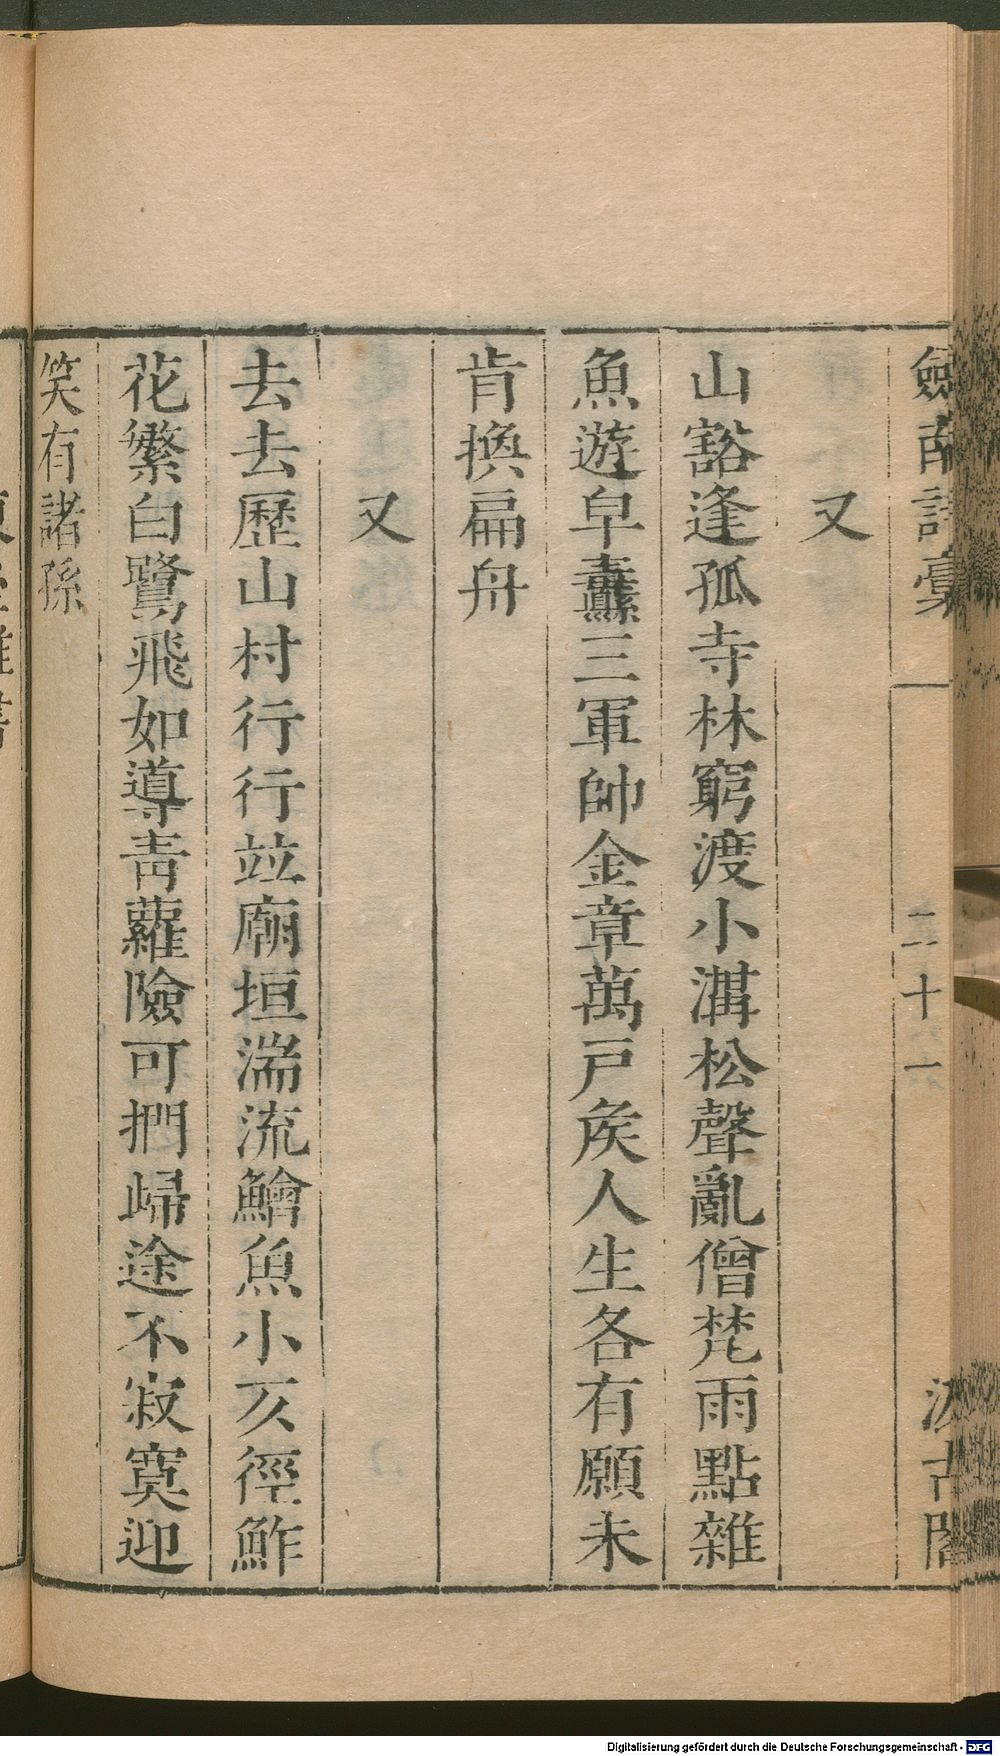 劍南詩稾
二十一
汲古閣
又
山豁逢孤寺林窮渡小溝松聲亂僧梵雨點雜
魚遊皁纛三軍帥金章萬戸矦人生各有願未
肯換扁舟
又
去去歷山村行行竝廟垣湍流鱠魚小亥徑鮓
花繁白鷺飛如導靑蘿險可捫歸途不寂寞迎
笑有諸孫
Digitalisierung gefördert durch die Deutsche Forschungsgemeinschaft - DFG